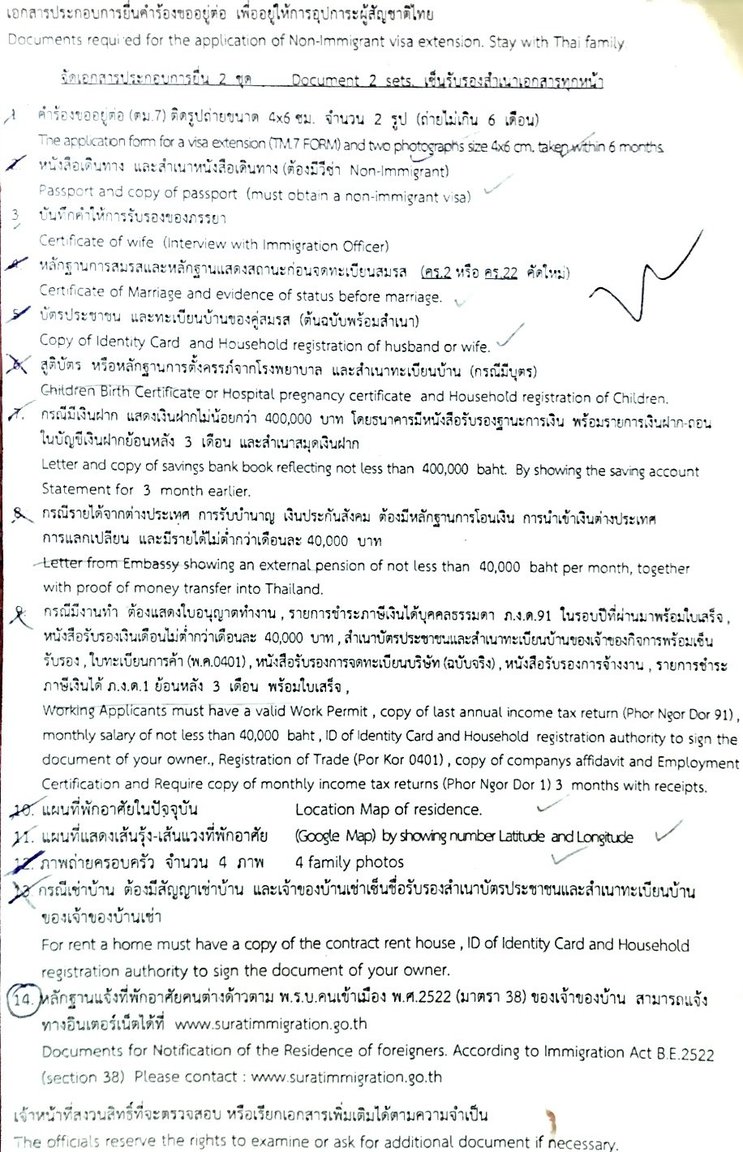 เอกสารประกอบการยื่นคำร้องขออยู่ต่อ เพื่ออยู่ให้การอุปการะผู้สัญชาติไทย
Documents required for the application of Non-Immigrant visa extension. Stay with Thai family.
จัดเอกสารประกอบการยื่น 2 ชุด Document 2 sets. เซ็นรับรองสำเนาเอกสารทุกหน้า
1. คำร้องขออยู่ต่อ (ตม.7) ติดรูปถ่ายขนาด 4x6 ซม. จำนวน 2 รูป (ถ่ายไม่เกิน 6 เดือน)
The application form for a visa extension (TM.7 FORM) and two photographs size 4x6 cm. taken within 6 months.
2. หนังสือเดินทาง และสำเนาหนังสือเดินทาง (ต้องมีวีซ่า Non-Immigrant)
Passport and copy of passport (must obtain a non-immigrant visa)
3. บันทึกคำให้การรับรองของภรรยา
Certificate of wife (Interview with Immigration Officer)
4. หลักฐานการสมรสและหลักฐานแสดงสถานะก่อนจดทะเบียนสมรส (คร.2 หรือ คร.22 คัดใหม่)
Certificate of Marriage and evidence of status before marriage.
5. บัตรประชาชน และทะเบียนบ้านของคู่สมรส (ต้นฉบับพร้อมสำเนา)
Copy of Identity Card and Household registration of husband or wife.
6. สูติบัตร หรือหลักฐานการตั้งครรภ์จากโรงพยาบาล และสำเนาทะเบียนบ้าน (กรณีมีบุตร)
Children Birth Certificate or Hospital pregnancy certificate and Household registration of Children.
7. กรณีมีเงินฝาก แสดงเงินฝากไม่น้อยกว่า 400,000 บาท โดยธนาคารมีหนังสือรับรองฐานะการเงิน พร้อมรายการเงินฝาก-ถอน
ในบัญชีเงินฝากย้อนหลัง 3 เดือน และสำเนาสมุดเงินฝาก
Letter and copy of savings bank book reflecting not less than 400,000 baht. By showing the saving account
Statement for 3 month earlier.
8. กรณีรายได้จากต่างประเทศ การรับบำนาญ เงินประกันสังคม ต้องมีหลักฐานการโอนเงิน การนำเข้าเงินต่างประเทศ
การแลกเปลี่ยน และมีรายได้ไม่ต่ำกว่าเดือนละ 40,000 บาท
Letter from Embassy showing an external pension of not less than 40,000 baht per month, together
with proof of money transfer into Thailand.
9. กรณีมีงานทำ ต้องแสดงใบอนุญาตทำงาน , รายการชำระภาษีเงินได้บุคคลธรรมดา ภ.ง.ด.91 ในรอบปีที่ผ่านมาพร้อมใบเสร็จ ,
หนังสือรับรองเงินเดือนไม่ต่ำกว่าเดือนละ 40,000 บาท , สำเนาบัตรประชาชนและสำเนาทะเบียนบ้านของเจ้าของกิจการพร้อมเซ็น
รับรอง , ใบทะเบียนการค้า (พ.ค.0401) , หนังสือรับรองการจดทะเบียนบริษัท (ฉบับจริง) , หนังสือรับรองการจ้างงาน , รายการชำระ
ภาษีเงินได้ ภ.ง.ด.1 ย้อนหลัง 3 เดือน พร้อมใบเสร็จ ,
Working Applicants must have a valid Work Permit , copy of last annual income tax return (Phor Ngor Dor 91) ,
monthly salary of not less than 40,000 baht , ID of Identity Card and Household registration authority to sign the
document of your owner., Registration of Trade (Por Kor 0401) , copy of companys affidavit and Employment
Certification and Require copy of monthly income tax returns (Phor Ngor Dor 1) 3 months with receipts.
10. แผนที่พักอาศัยในปัจจุบัน Location Map of residence.
11. แผนที่แสดงเส้นรุ้ง-เส้นแวงที่พักอาศัย (Google Map) by showing number Latitude and Longitude
12. ภาพถ่ายครอบครัว จำนวน 4 ภาพ 4 family photos
13. กรณีเช่าบ้าน ต้องมีสัญญาเช่าบ้าน และเจ้าของบ้านเช่าเซ็นชื่อรับรองสำเนาบัตรประชาชนและสำเนาทะเบียนบ้าน
ของเจ้าของบ้านเช่า
For rent a home must have a copy of the contract rent house , ID of Identity Card and Household
registration authority to sign the document of your owner.
14. หลักฐานแจ้งที่พักอาศัยคนต่างด้าวตาม พ.ร.บ.คนเข้าเมือง พ.ศ.2522 (มาตรา 38) ของเจ้าของบ้าน สามารถแจ้ง
ทางอินเตอร์เน็ตได้ที่ www.suratimmigration.go.th
Documents for Notification of the Residence of foreigners. According to Immigration Act B.E.2522
(section 38) Please contact : www.suratimmigration.go.th
เจ้าหน้าที่สงวนสิทธิ์ที่จะตรวจสอบ หรือเรียกเอกสารเพิ่มเติมได้ตามความจำเป็น
The officials reserve the rights to examine or ask for additional document if necessary.